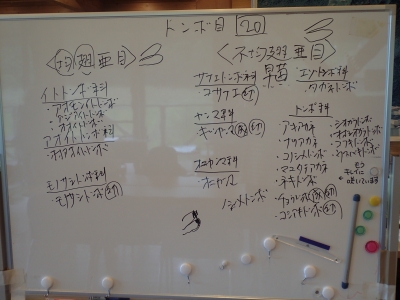 トンボ目 20
<均翅亜目>
イトトンボ科
・アオモンイトトンボ
・アジアイトトンボ
・アオイトトンボ科
・ホソミイトトンボ
モノサシトンボ科
・モノサシトンボ
<不均翅亜目>
サナエトンボ科
・コサナエ
ヤンマ科
・ギンヤンマ
オニヤンマ科
・オニヤンマ
エゾトンボ科
・タカネトンボ
トンボ科
・アキアカネ
・ナツアカネ
・コノシメトンボ
・マユタテアカネ
・ネキトンボ
・チョウトンボ
・コシアキトンボ
・シオカラトンボ
・オオシオカラトンボ
ノシメトンボ